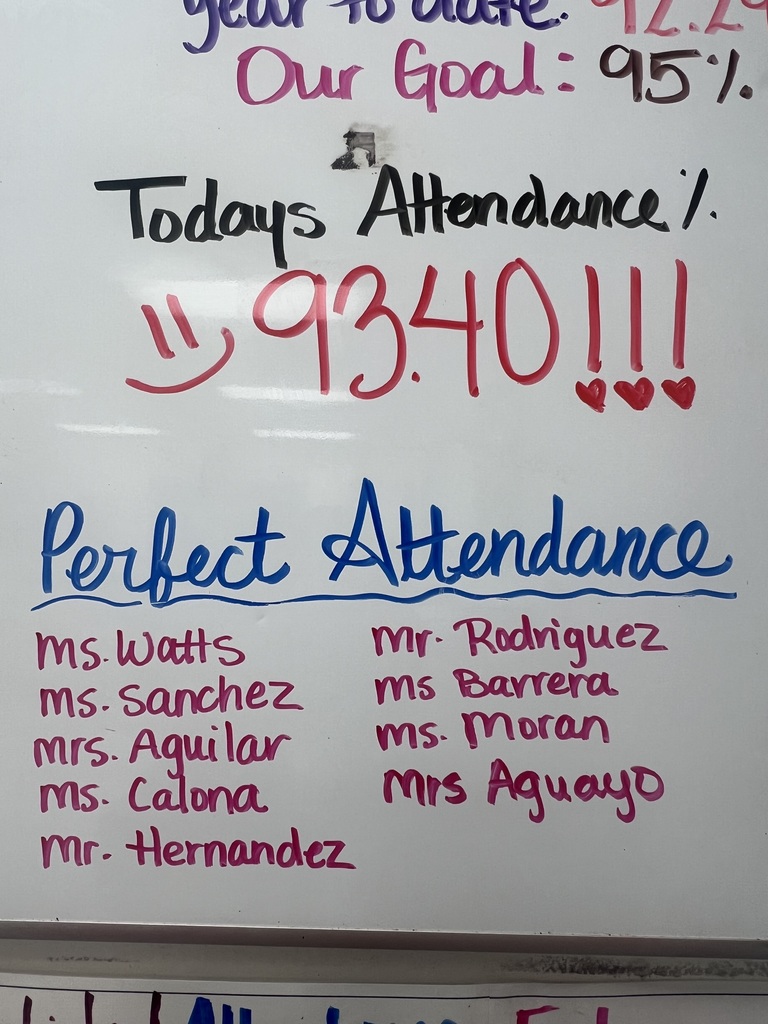 year to date: 92.29
Our Goal: 95%
Todays Attendance %
93.40!!!
Perfect Attendance
Ms. Watts
Ms. Sanchez
Mrs. Aguilar
Ms. Calona
Mr. Hernandez
Mr. Rodriguez
Ms Barrera
Ms. Moran
Mrs Aguayo
Attendance